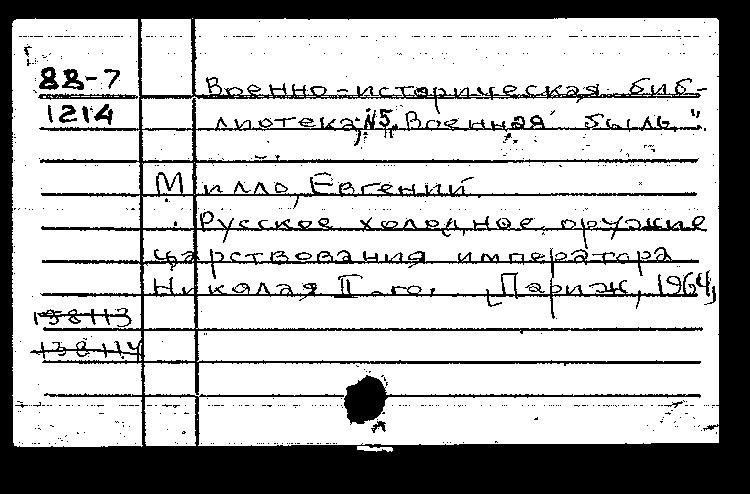 88-7
1214
Военно-историческая биб-
лиотека, №5, "Военная быль"
Милло, Евгений
Русское холодное оружие
царствования императора
Николая II-го. [Париж, 1964,
138113
138114